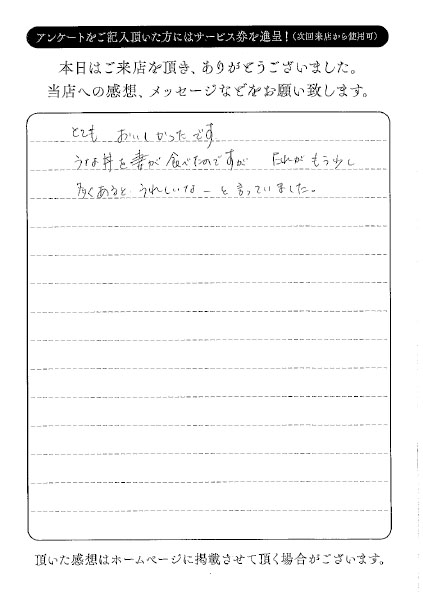 アンケートをご記入頂いた方にはサービス券を進呈!(次回来店から使用可)
本日はご来店を頂き、ありがとうございました。
当店への感想、メッセージなどをお願い致します。
とても おいしかったです
うな丼を妻が食べたのですが たれがもう少し
多くあると うれしいなーと言っていました。
頂いた感想はホームページに掲載させて頂く場合がございます。